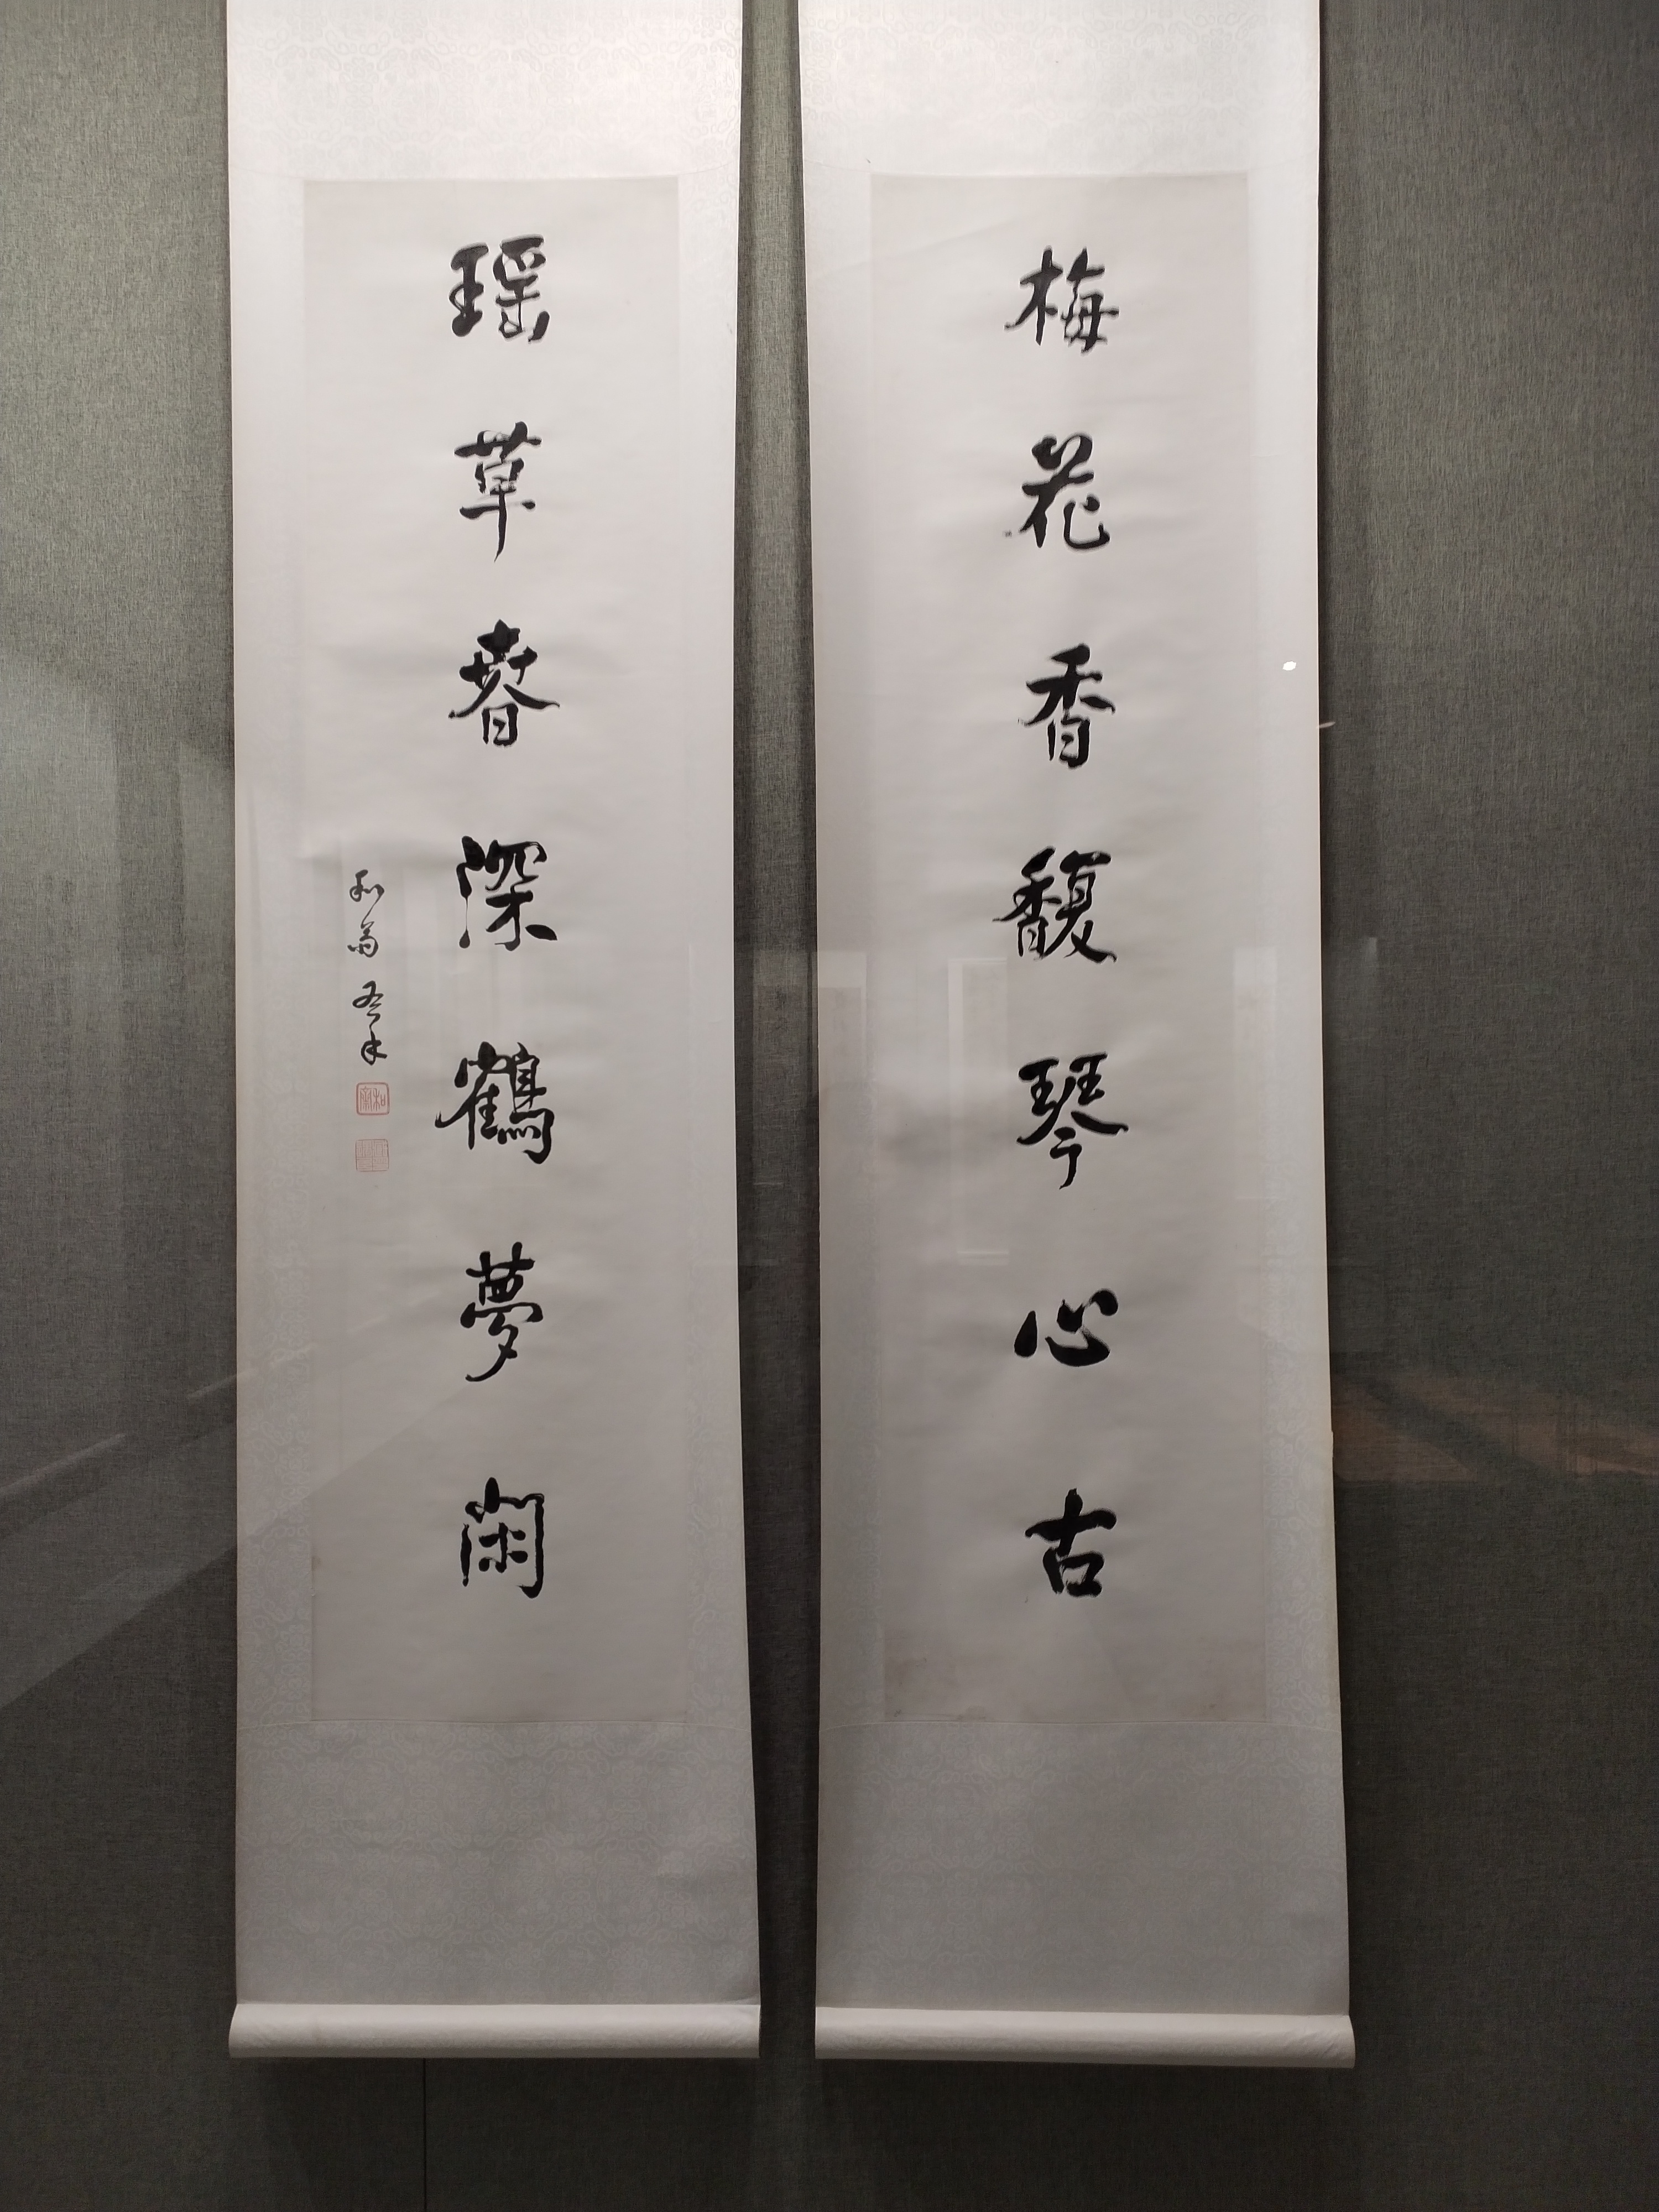 梅花香馥琴心古
瑶草春深鶴夢閑
和翁